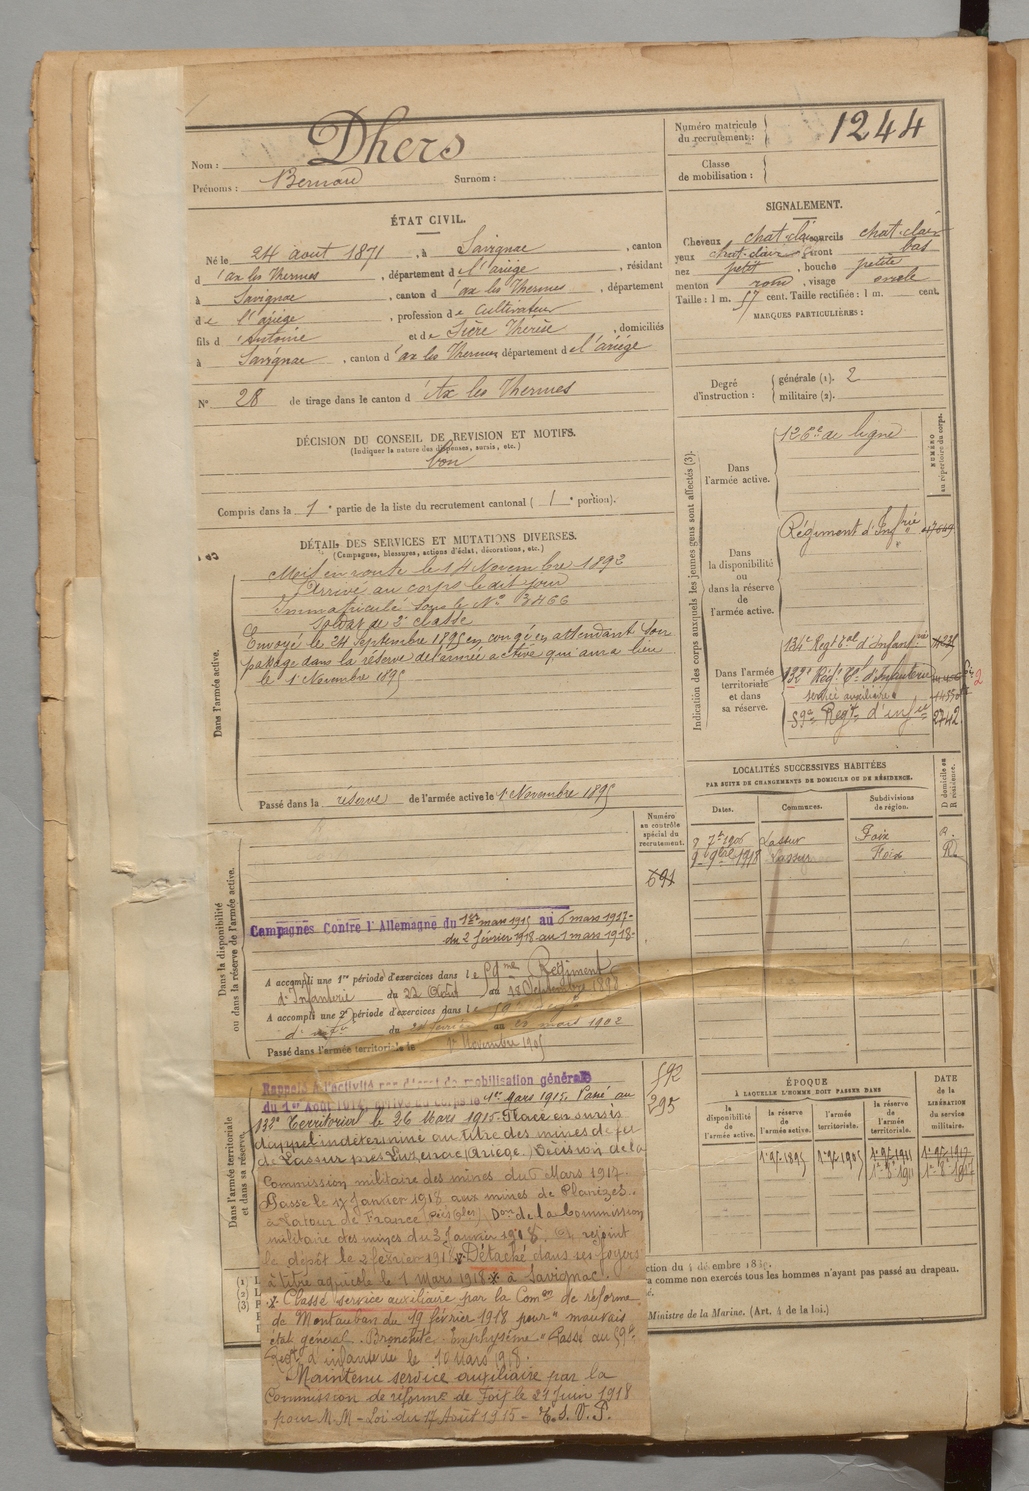 Nom : Dhers
Prénoms : Bernard Surnom :
Numéro matricule du recrutement : 1244
Classe de mobilisation :
ÉTAT CIVIL.
Né le 24 août 1871, à Savignac, canton
d'ax les Thermes, département de l'ariège, résidant
à Savignac, canton d'ax les Thermes, département
de l'ariège, profession de Cultivateur
fils d'Antoine et de Sère Thérèse, domiciliés
à Savignac, canton d'ax les Thermes département de l'ariège
N° 28 de tirage dans le canton d'Ax les Thermes
DÉCISION DU CONSEIL DE REVISION ET MOTIFS.
(Indiquer la nature des dispenses, sursis, etc.)
bon
Compris dans la 1e partie de la liste du recrutement cantonal ( 1e portion).
SIGNALEMENT.
Cheveux chat.clair sourcils chat.clair
yeux chat.clair front bas
nez petit, bouche petite
menton rond, visage ovale
Taille : 1 m. 57 cent. Taille rectifiée : 1 m. cent.
MARQUES PARTICULIÈRES :
Degré d'instruction : générale (1). 2
militaire (2).
DÉTAIL DES SERVICES ET MUTATIONS DIVERSES.
(Campagnes, blessures, actions d'éclat, décorations, etc.)
Dans l'armée active.
Mis en route le 14 Novembre 1892
Arrivé au corps le dit jour
Immatriculé sous le N° 3466
Soldat de 2e classe
Envoyé le 24 Septembre 1895 en congé en attendant son
passage dans la réserve de l'armée active qui aura lieu
le 1 Novembre 1895
Passé dans la réserve de l'armée active le 1 Novembre 1895
Indication des corps auxquels les jeunes gens sont affectés (3).
NUMÉRO au répertoire du corps.
Dans l'armée active.
126e de ligne
Dans la disponibilité ou dans la réserve de l'armée active.
Régiment d'Infrie
Dans l'armée territoriale et dans sa réserve.
134e Regt Tal d'Infanrie
132e Régt Tal d'Infanterie
service auxiliaire
59e Regt d'infie 2742
LOCALITÉS SUCCESSIVES HABITÉES
PAR SUITE DE CHANGEMENTS DE DOMICILE OU DE RÉSIDENCE.
Dates. Communes. Subdivisions de région. D domicile ou R résidence.
7bre 1906 Lassur Foix
9 9bre 1918 Lassur Foix R.
Numéro au contrôle spécial du recrutement.
691
Dans la disponibilité ou dans la réserve de l'armée active.
Campagnes Contre l'Allemagne du 1er mars 1915 au 6 mars 1917-
du 2 février 1918 au 1 mars 1918-
A accompli une 1re période d'exercices dans le 59me Régiment
d'Infanterie du 22 Août au 18 Septembre 1898
A accompli une 2e période d'exercices dans le 59
d'infie du au mars 1902
Passé dans l'armée territoriale le 1er Novembre 1905
592
295
Dans l'armée territoriale et dans sa réserve.
Rappelé à l'activité par décret de mobilisation générale
du 1er Août 1914, arrivé au corps le 1er Mars 1915. Passé au
132e Territorial le 26 Mars 1915. Placé en sursis
d'appel indéterminé au titre des mines de fer
de Lassur près Luzenac (Ariège) Décision de la
Commission militaire des mines du 6 Mars 1917.
Passe le 17 Janvier 1918 aux mines de Planèzes.
à Latour de France (Pées Oles) Don de la Commission
militaire des mines du 3 Janvier 1918. a rejoint
le dépôt le 2 février 1918 * Détaché dans ses foyers
à titre agricole le 1 Mars 1918 * à Savignac.
* Classé service auxiliaire par la Comon de réforme
de Montauban du 19 février 1918 pour "mauvais
état général. Bronchite Emphysème" Passé au 59e
Regt d'infanterie le 10 Mars 1918.
Maintenu service auxiliaire par la
Commission de réforme de Foix le 24 Juin 1918
pour M.M - Loi du 17 Août 1915 - T.S.V.P.
ÉPOQUE
À LAQUELLE L'HOMME DOIT PASSER DANS
DATE de la LIBÉRATION du service militaire.
la disponibilité de l'armée active. la réserve de l'armée active. l'armée territoriale. la réserve de l'armée territoriale.
1er 9bre 1895 1er 9bre 1905
ction du 4 décembre 18
a comme non exercés tous les hommes n'ayant pas passé au drapeau.
é.
Ministre de la Marine. (Art. 4 de la loi.)
(1)
(2)
(3)